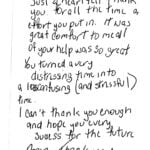 Just a heartfelt thank
you for all the time &
effort you put in. It was
great comfort to me all
of your help was so great
You turned a very
distressing time into
a less confusing (and stressful)
time.
I can't thank you enough
and hope you every
success for the future